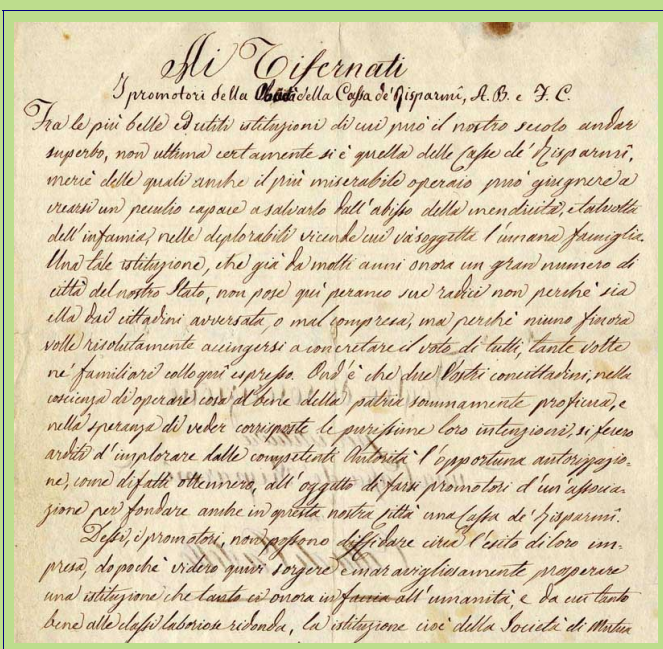 Ai Tifernati
I promotori della della Cassa de' Risparmi, A. B. e F. C.
Fra le più belle ed utili istituzioni di cui può il nostro secolo andar
superbo, non ultima certamente si è quella delle Casse de' Risparmi,
mercè delle quali anche il più miserabile operaio può giugnere a
crearsi un peculio capace a salvarlo dall'abisso della mendicità, e talvolta
dell'infamia, nelle deplorabili vicende cui va soggetta l'umana famiglia.
Una tale istituzione, che già da molti anni onora un gran numero di
città del nostro Stato, non pose quì peranco sue radici non perchè sia
ella dai cittadini avversata, o mal compresa, ma perchè niuno finora
volle risolutamente accingersi a concretare il voto di tutti, tante volte
ne' familiari colloqui espresso. Ond'è che due Vostri concittadini, nella
coscienza di operare cosa al bene della patria sommamente proficua, e
nella speranza di veder corrisposte le purissime loro intenzioni, si fecero
arditi d'implorare dalle competenti Autorità l'opportuna autorizzazio-
ne, come difatti ottennero, all'oggetto di farsi promotori d'un'associa-
zione per fondare anche in questa nostra Città una Cassa de' Risparmi.
Dessi, i promotori, non possono diffidare circa l'esito di loro im-
presa, dopochè videro quivi sorgere e maravigliosamente prosperare
una istituzione che tanto ci onora in faccia all'umanità, e da cui tanto
bene alle classi laboriose ridonda, la istituzione cioè della Società di Mutuo